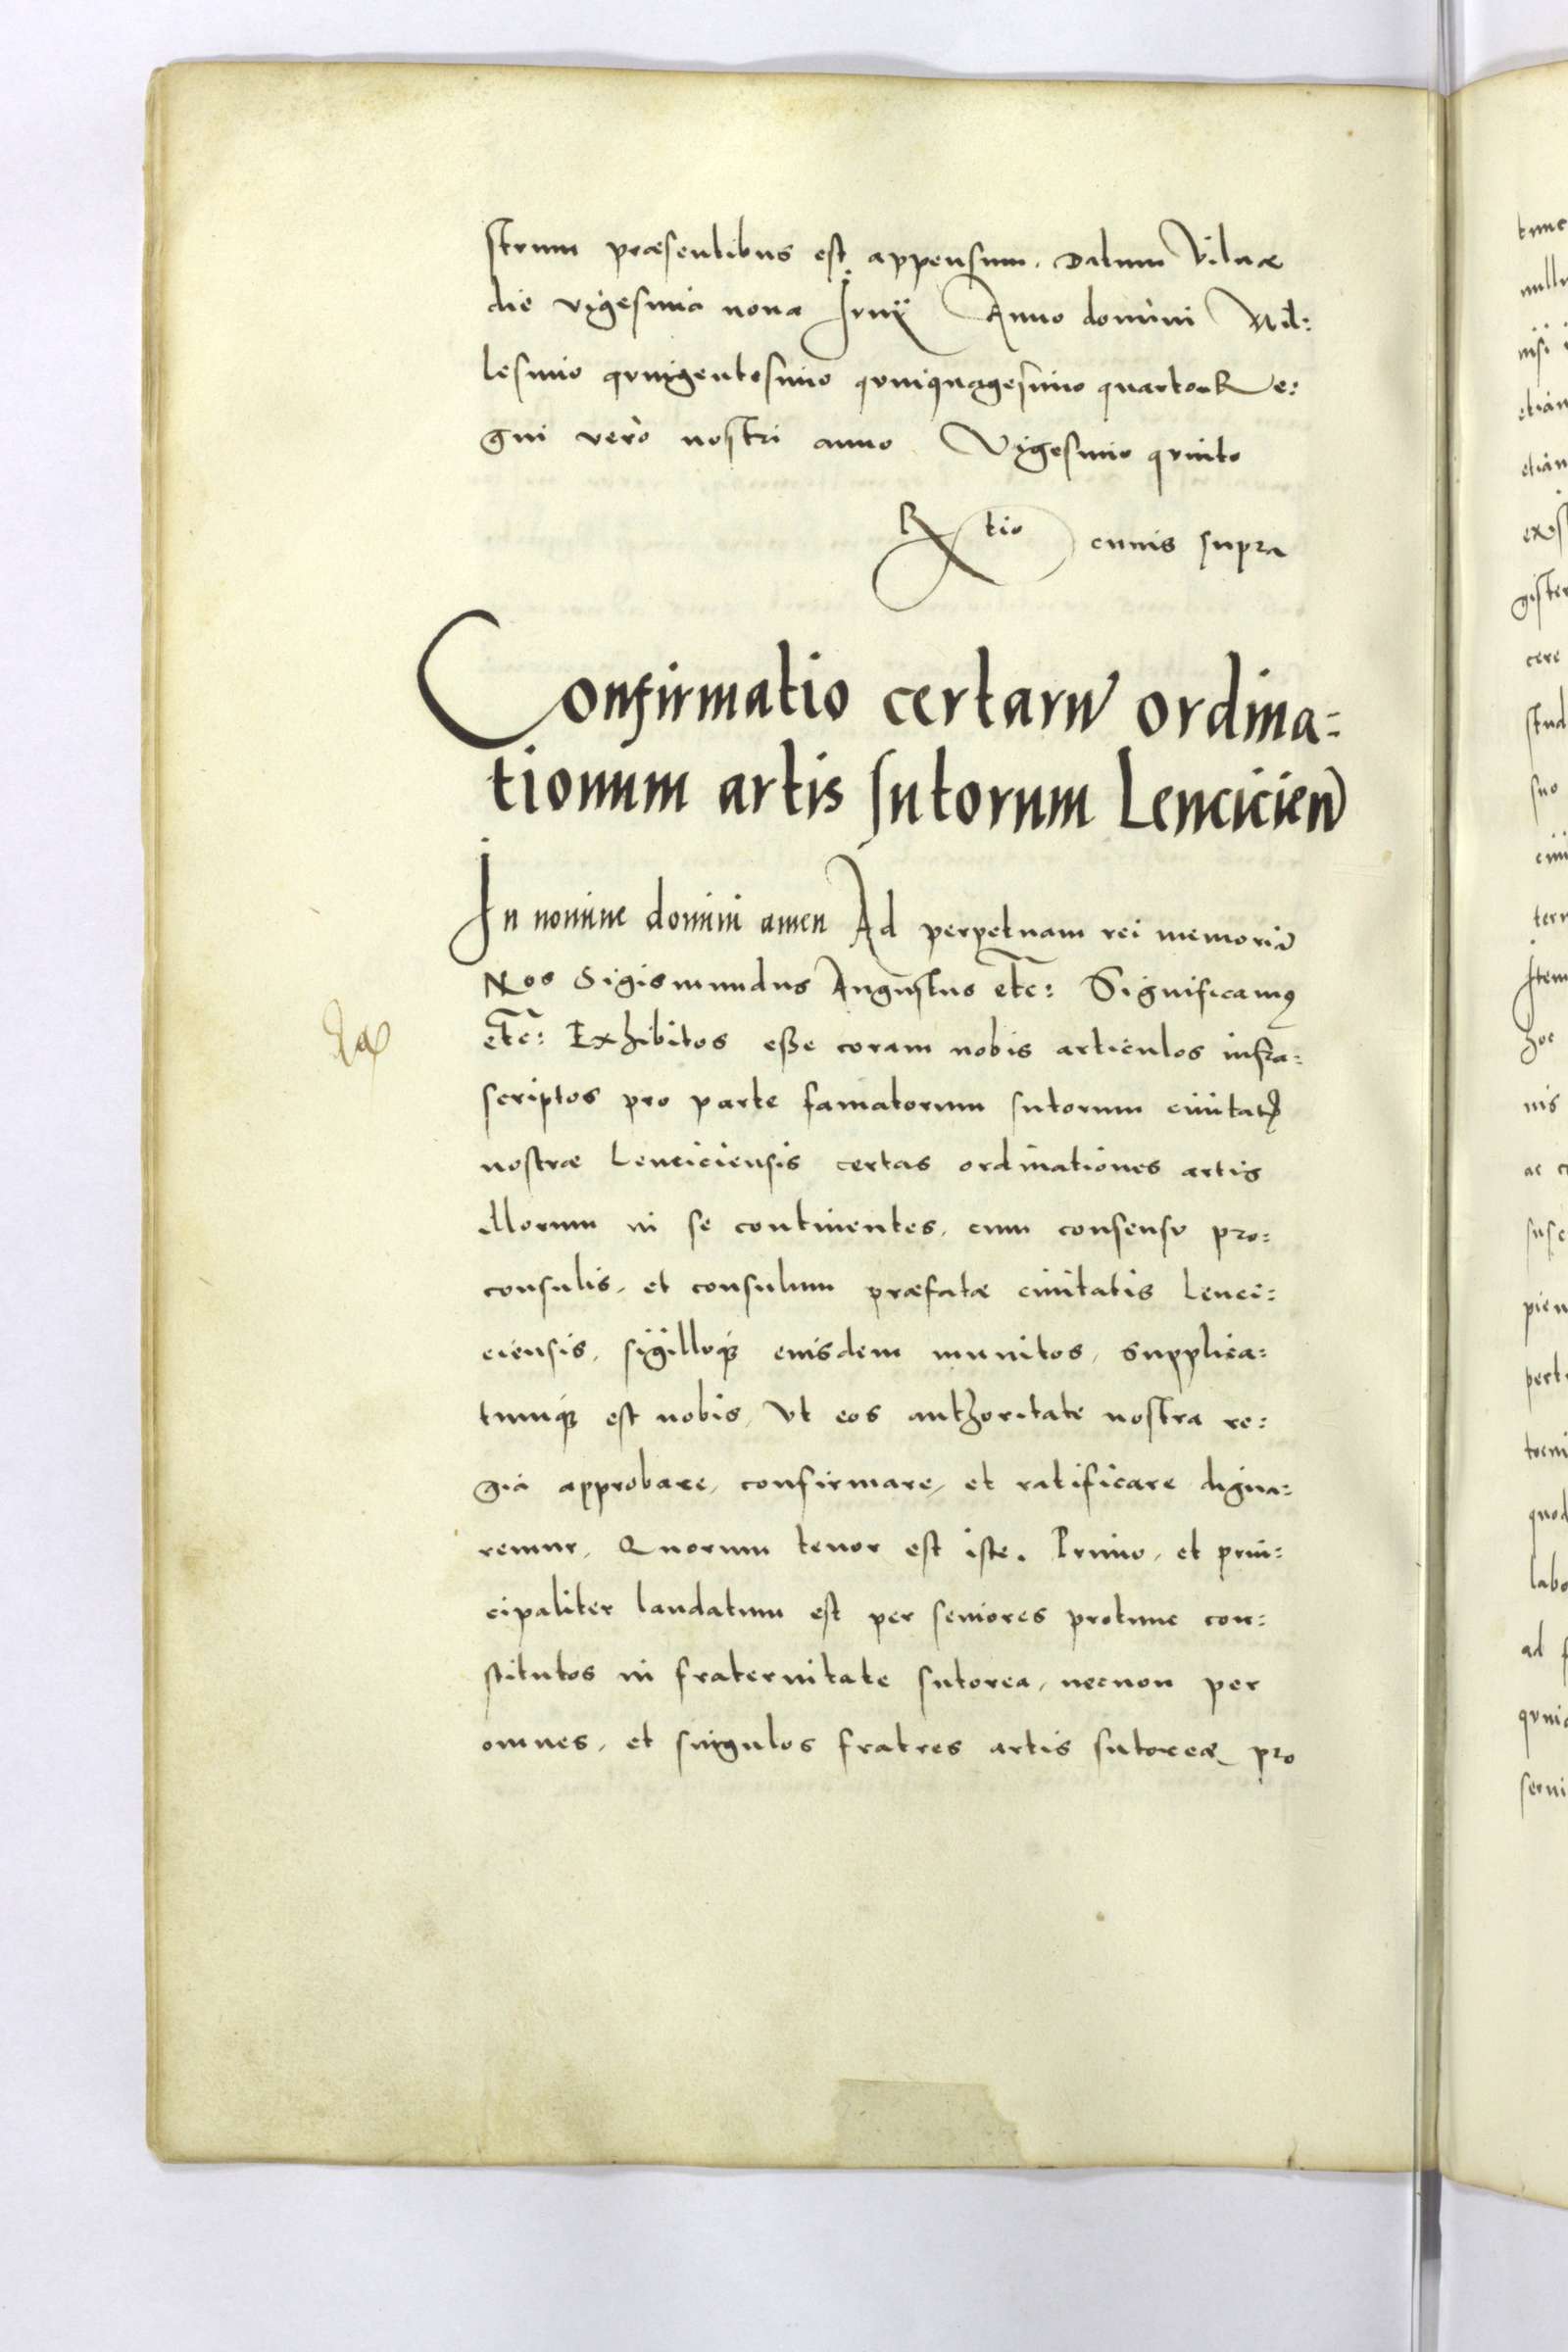 strum præsentibus est appensum. Datum Vilnæ
die vigesima nona Junij Anno domini Mil:
lesimo quingentesimo quinquagesimo quarto Re:
gni verò nostri anno Vigesimo quinto
Rtio cuius supra
Confirmatio certarum ordina:
tionum artis sutorum Lencicien
In nomine domini amen Ad perpetuam rei memoriã
Nos Sigismundus Augustus etc: Significamus
etc: Exhibitos esse coram nobis articulos infra:
scriptos pro parte famatorum sutorum ciuitatis
nostræ Lenciciensis certas ordinationes artis
illorum in se continentes, cum consensu pro:
consulis, et consulum præfatæ ciuitatis Lenci:
ciensis, sigilloque eiusdem munitos, supplica:
tumque est nobis, Vt eos authoritate nostra re:
gia approbare, confirmare, et ratificare digna:
remur, Quorum tenor est iste. Primo, et prin:
cipaliter laudatum est per seniores protunc con:
stitutos in fraternitate sutorea, necnon per
omnes, et singulos fratres artis sutoreæ pro